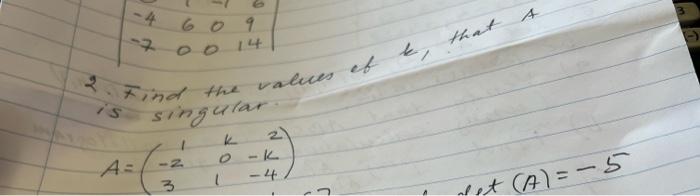 1 -1 6
-4 6 0 9
-7 0 0 14
2. Find the values of k, that A
is singular.
1 k 2
A= -2 0 -k
3 1 -4
det (A) = -5